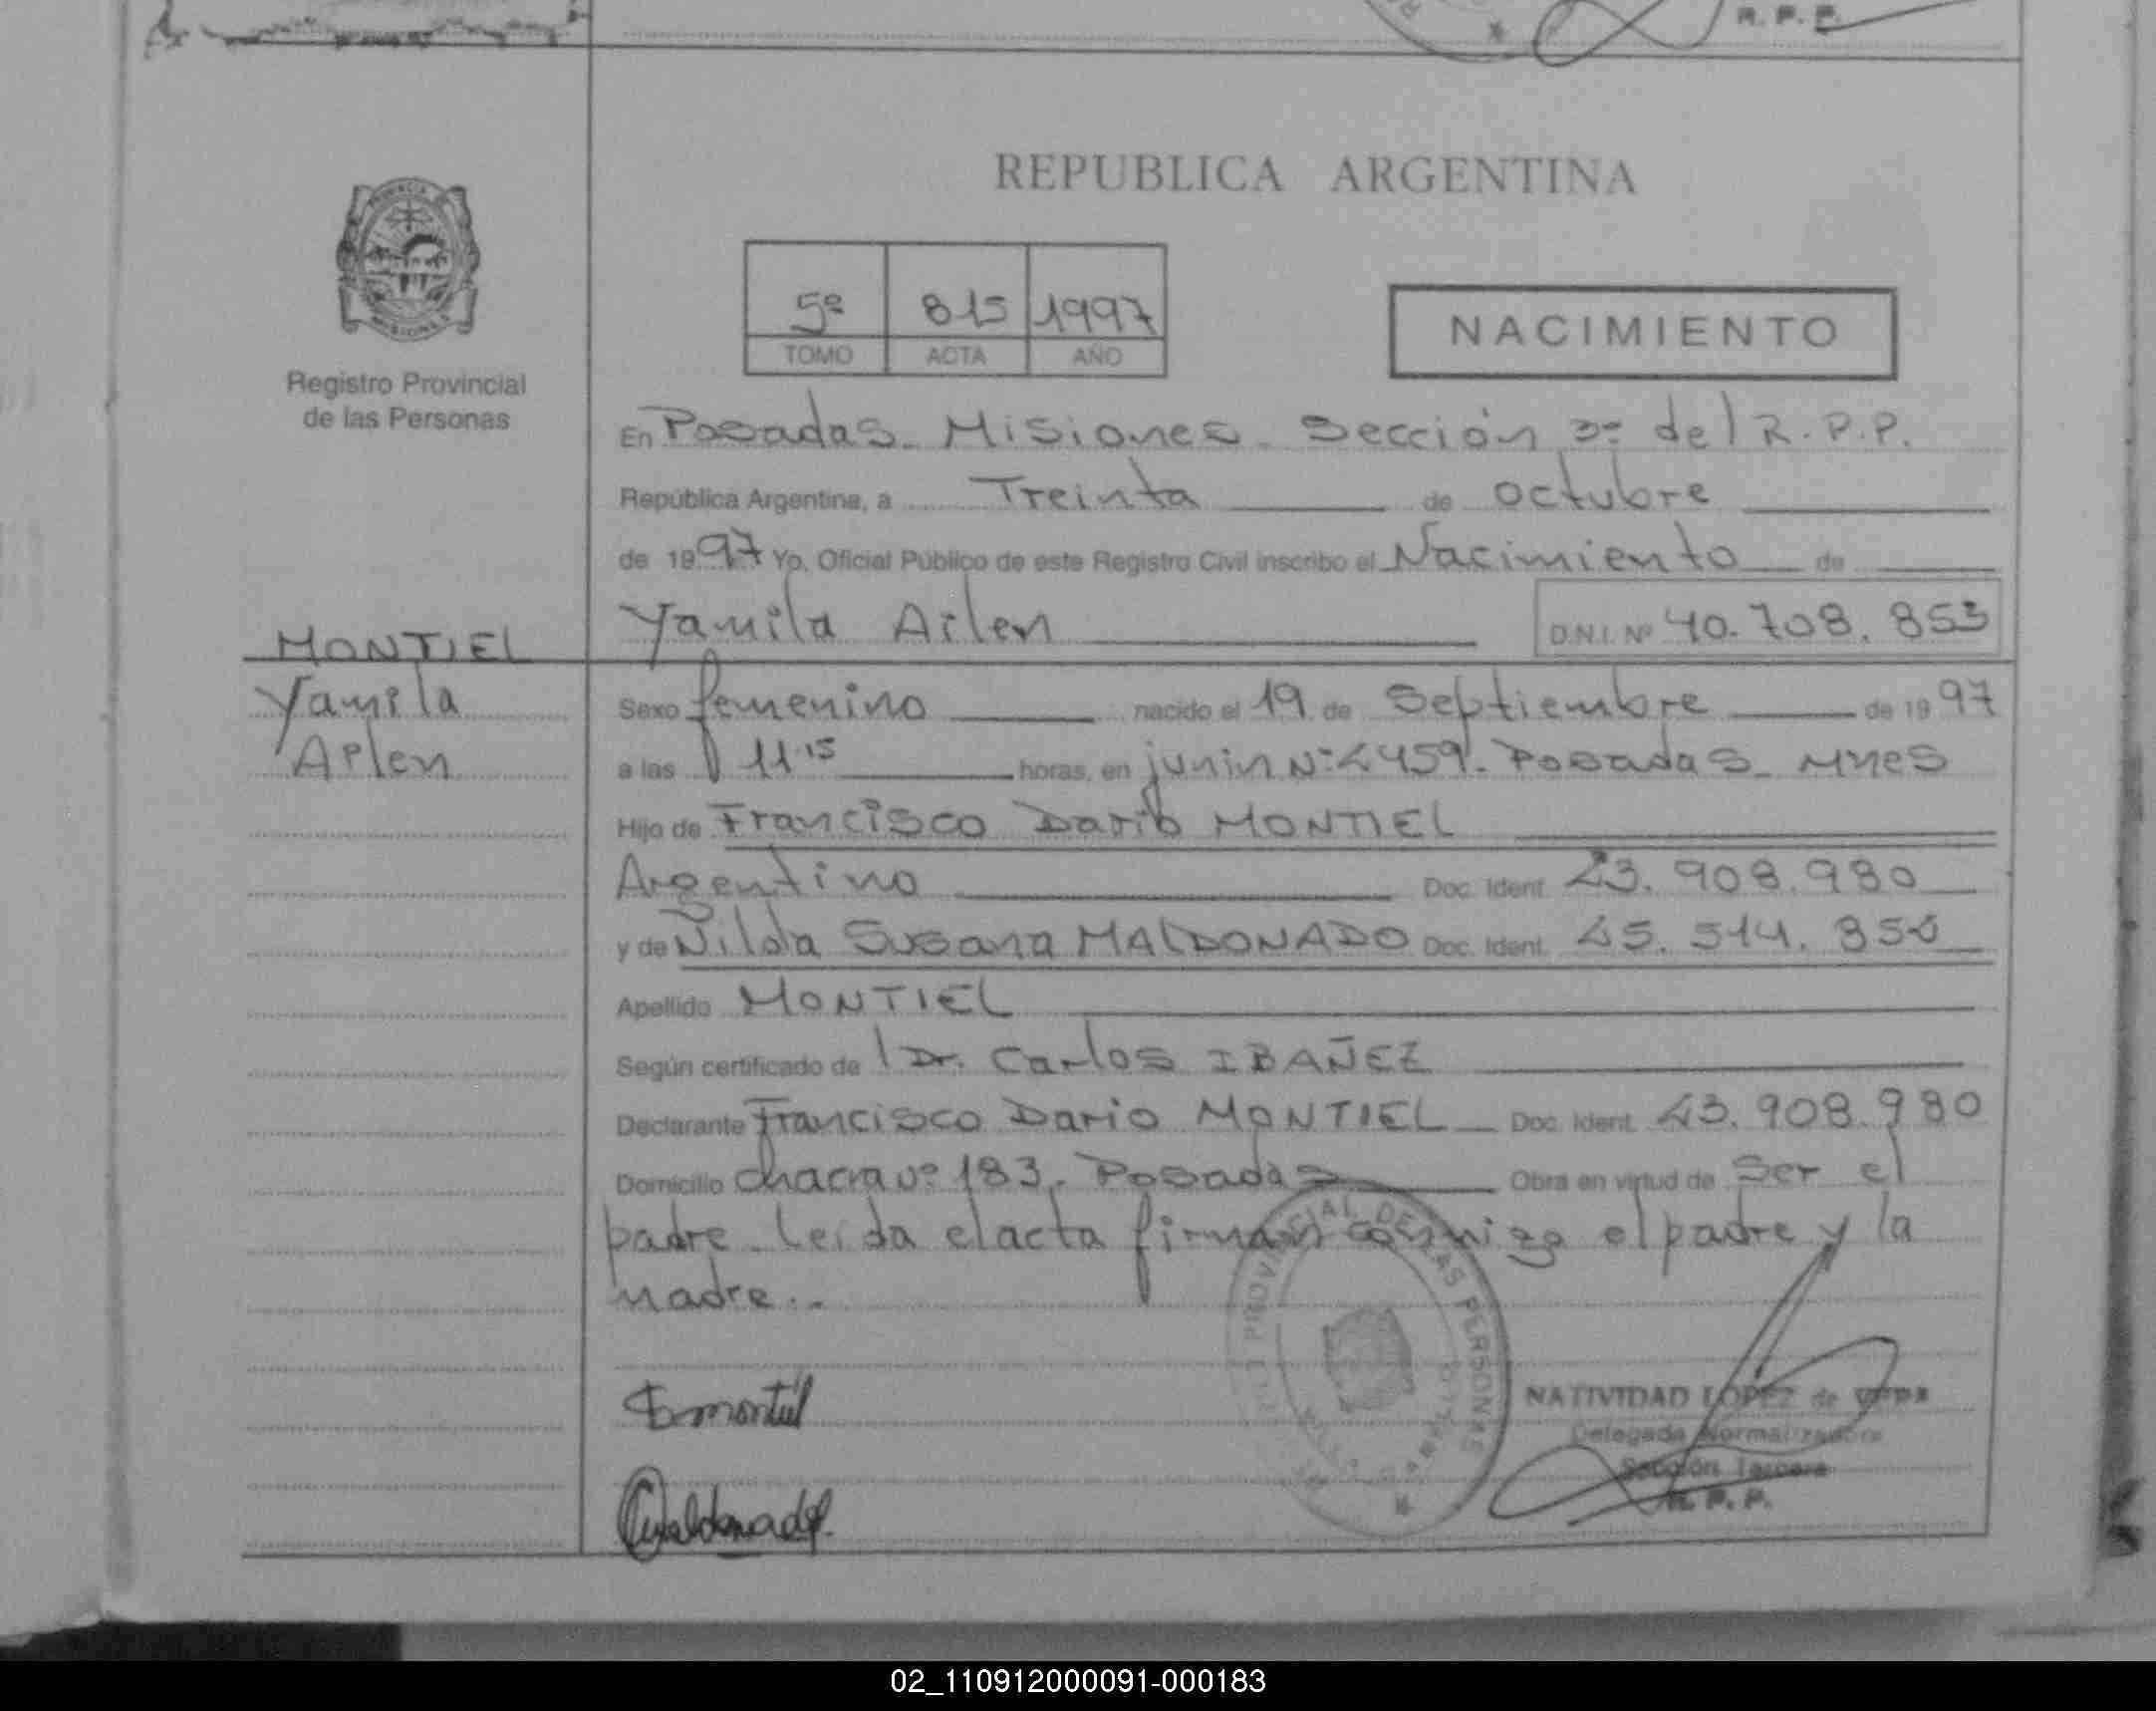 R. P. P.
REPUBLICA ARGENTINA
PROVINCIA
MISIONES
Registro Provincial
de las Personas
5º 815 1997
TOMO ACTA AÑO
NACIMIENTO
En Posadas. Misiones. Sección 3º del R.P.P.
República Argentina, a Treinta de octubre
de 1997 Yo, Oficial Público de este Registro Civil inscribo el Nacimiento de
Yamila Ailen D.N.I. Nº 40.708.853
MONTIEL
Yamila
Ailen
Sexo femenino nacido el 19 de Septiembre de 1997
a las 11.15 horas, en junin Nº 2459. Posadas. Mnes
Hijo de Francisco Dario MONTIEL
Argentino Doc. Ident. 23.908.980
y de Nilda Susana MALDONADO Doc. Ident. 25.514.850
Apellido MONTIEL
Según certificado de Dr. Carlos IBAÑEZ
Declarante Francisco Dario MONTIEL Doc. Ident. 23.908.980
Domicilio chacra Nº 183. Posadas Obra en virtud de Ser el
padre. Leida el acta firman conmigo el padre y la
madre..
PROVINCIAL DE LAS PERSONAS
montiel
Maldonado
NATIVIDAD LOPEZ de
Delegada Normalizadora
Sección Tercera
R. P. P.
02_110912000091-000183